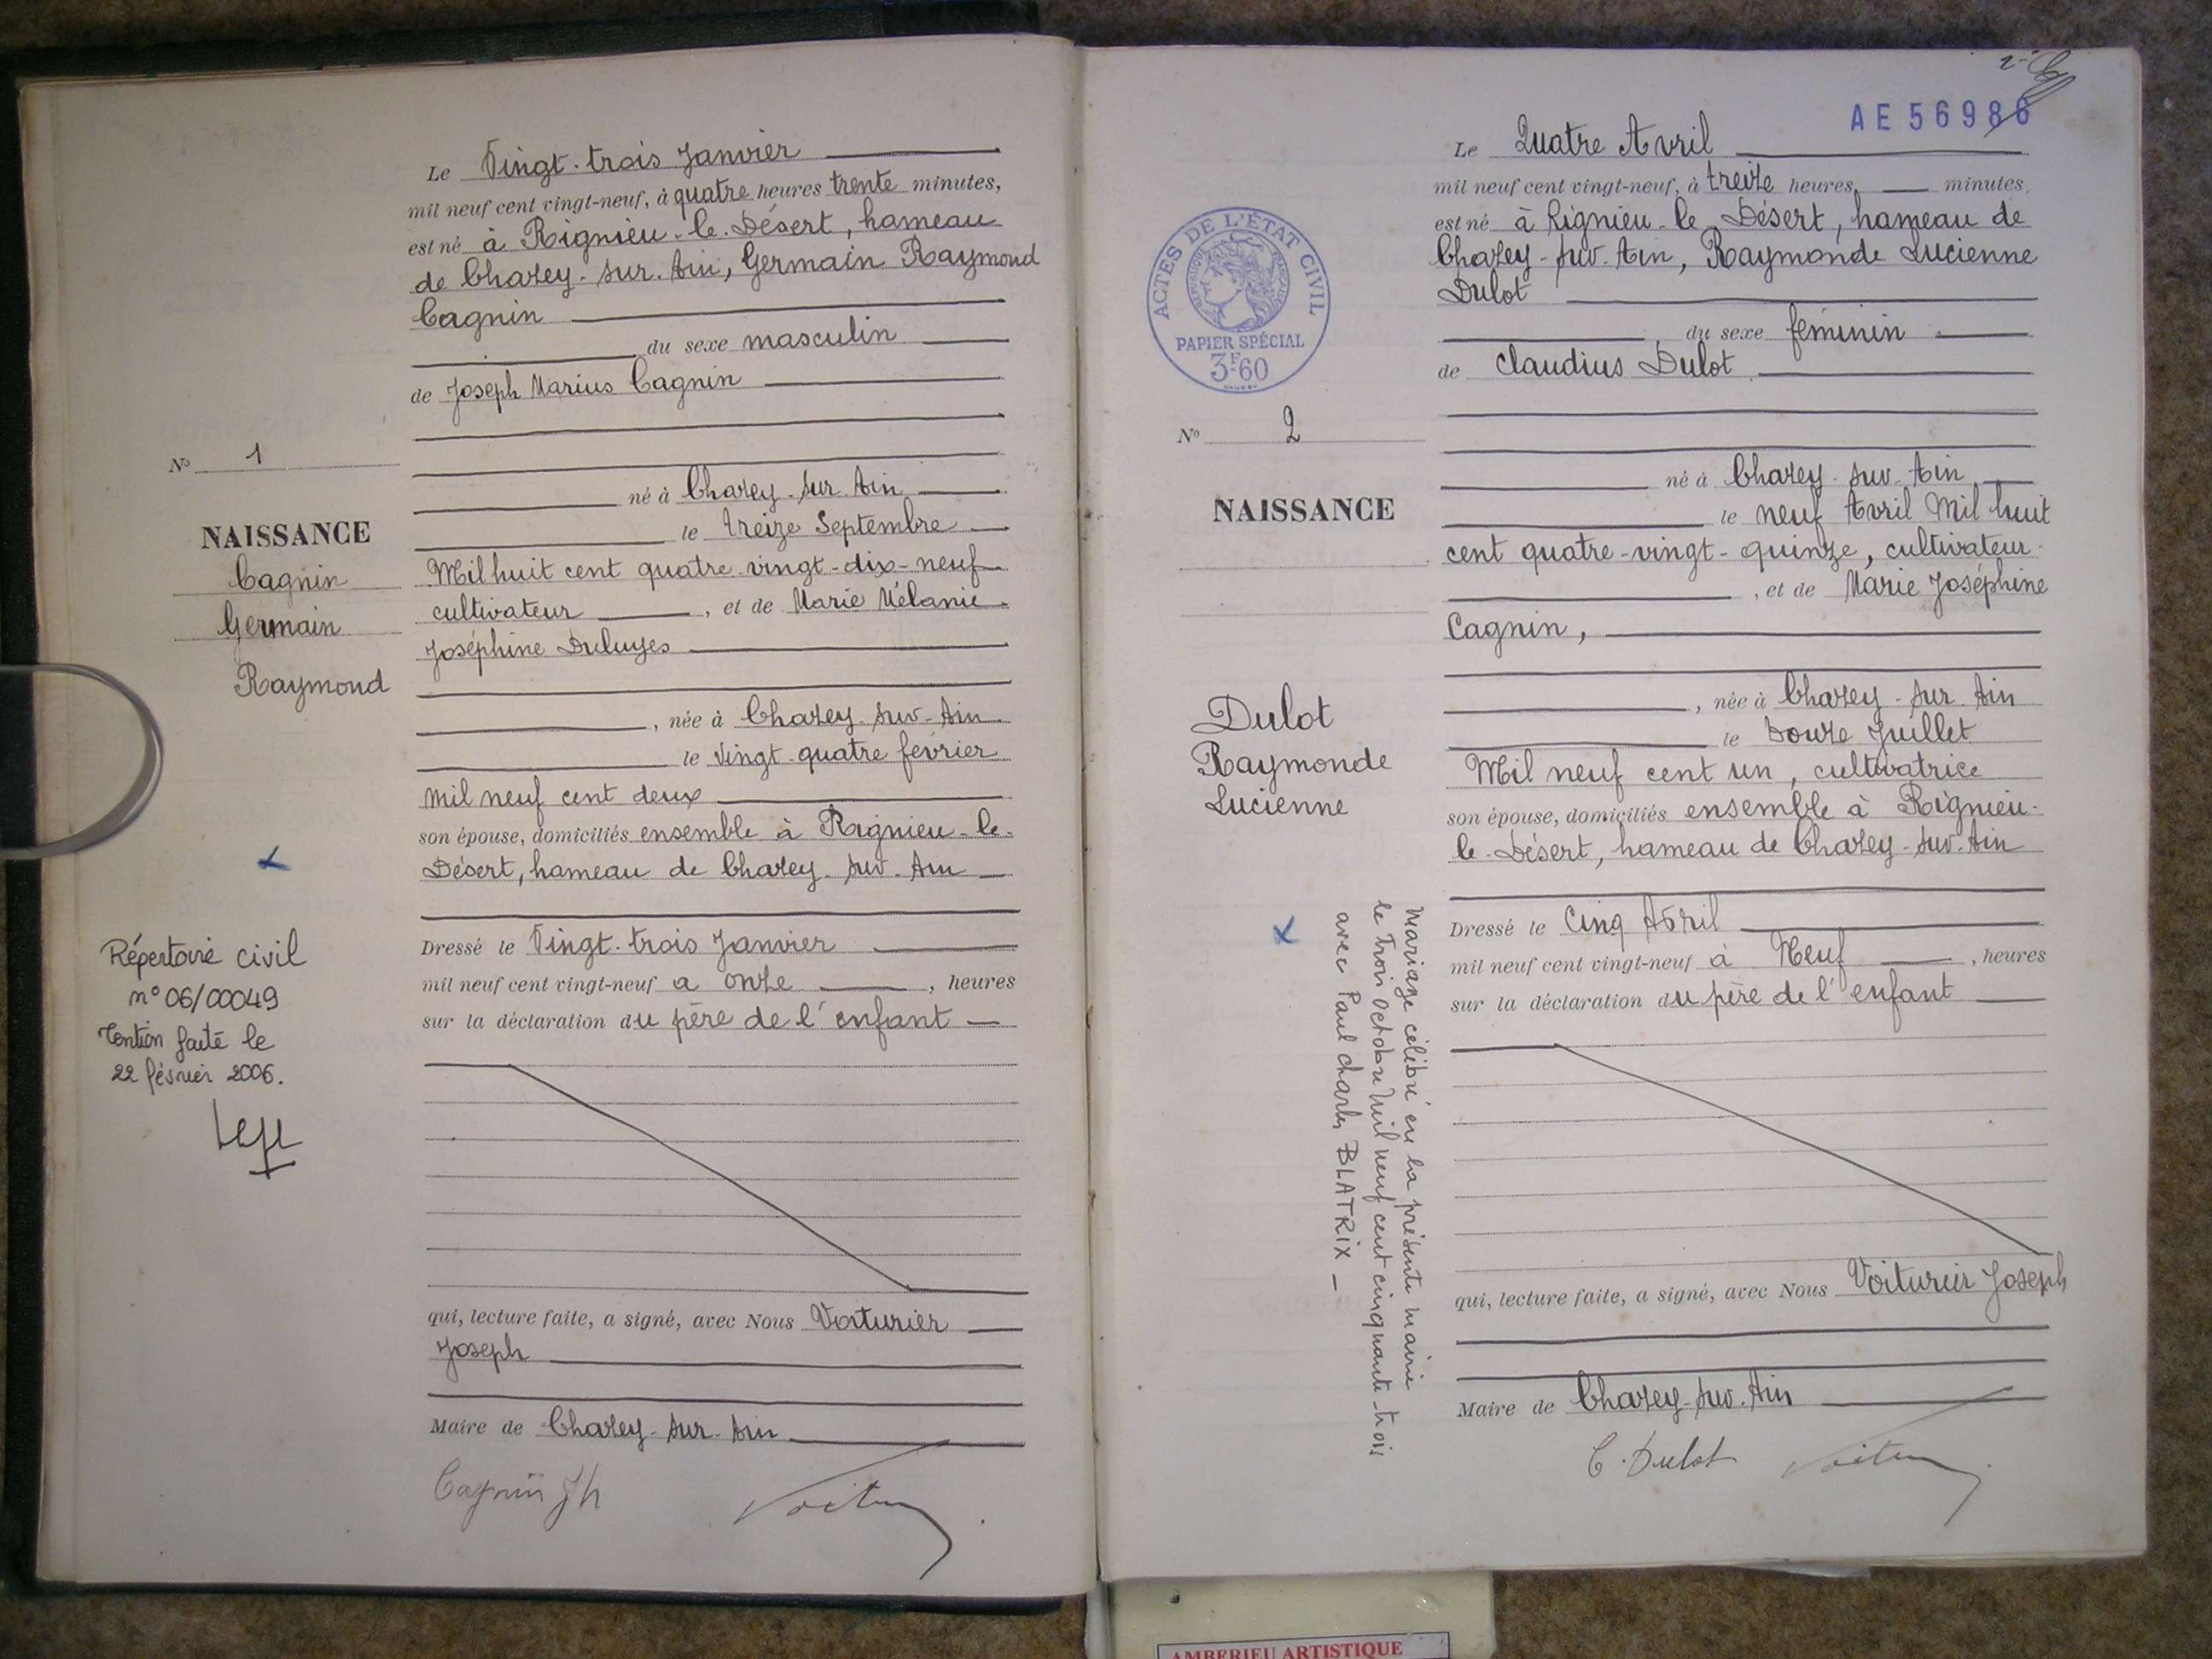 Le Vingt-trois Janvier
mil neuf cent vingt-neuf, à quatre heures trente minutes,
est né à Rignieu-le-Désert, hameau
de Chazey-sur-Ain, Germain Raymond
Cagnin
du sexe masculin
de Joseph Marius Cagnin
né à Chazey-sur-Ain
le treize Septembre
Mil huit cent quatre-vingt-dix-neuf
cultivateur, et de Marie Mélanie
Joséphine
, née à Chazey-sur-Ain
le Vingt-quatre février
mil neuf cent deux
son épouse, domiciliés ensemble à Rignieu-le-
Désert, hameau de Chazey-sur-Ain
Dressé le Vingt-trois Janvier
mil neuf cent vingt-neuf a onze, heures
sur la déclaration du père de l'enfant
qui, lecture faite, a signé, avec Nous Voiturier
Joseph
Maire de Chazey-sur-Ain
Cagnin Jh
N° 1
NAISSANCE
Cagnin
Germain
Raymond
Répertoire civil
n° 06/00049
faite le
22 février 2006.
AE 56986
Le Quatre Avril
mil neuf cent vingt-neuf, à treize heures, minutes,
est né à Rignieu-le Désert, hameau de
Chazey-sur-Ain, Raymonde Lucienne
Dulot
du sexe féminin
de Claudius Dulot
né à Chazey-sur-Ain
le neuf Avril Mil huit
cent quatre-vingt-quinze, cultivateur
, et de Marie Joséphine
Cagnin,
, née à Chazey-sur-Ain
le Douze Juillet
Mil neuf cent un, cultivatrice
son épouse, domiciliés ensemble à Rignieu-
le-Désert, hameau de Chazey-sur-Ain
Dressé le Cinq Avril
mil neuf cent vingt-neuf à Neuf, heures
sur la déclaration du père de l'enfant
qui, lecture faite, a signé, avec Nous Voiturier Joseph
Maire de Chazey-sur-Ain
C. Dulot
ACTES DE L'ÉTAT CIVIL
RÉPUBLIQUE FRANÇAISE
PAPIER SPÉCIAL
3F60
N° 2
NAISSANCE
Dulot
Raymonde
Lucienne
Mariage célébré en la présente mairie
le Trois Octobre Mil neuf cent cinquante-trois
avec Paul Charles BLATRIX
AMBERIEU ARTISTIQUE